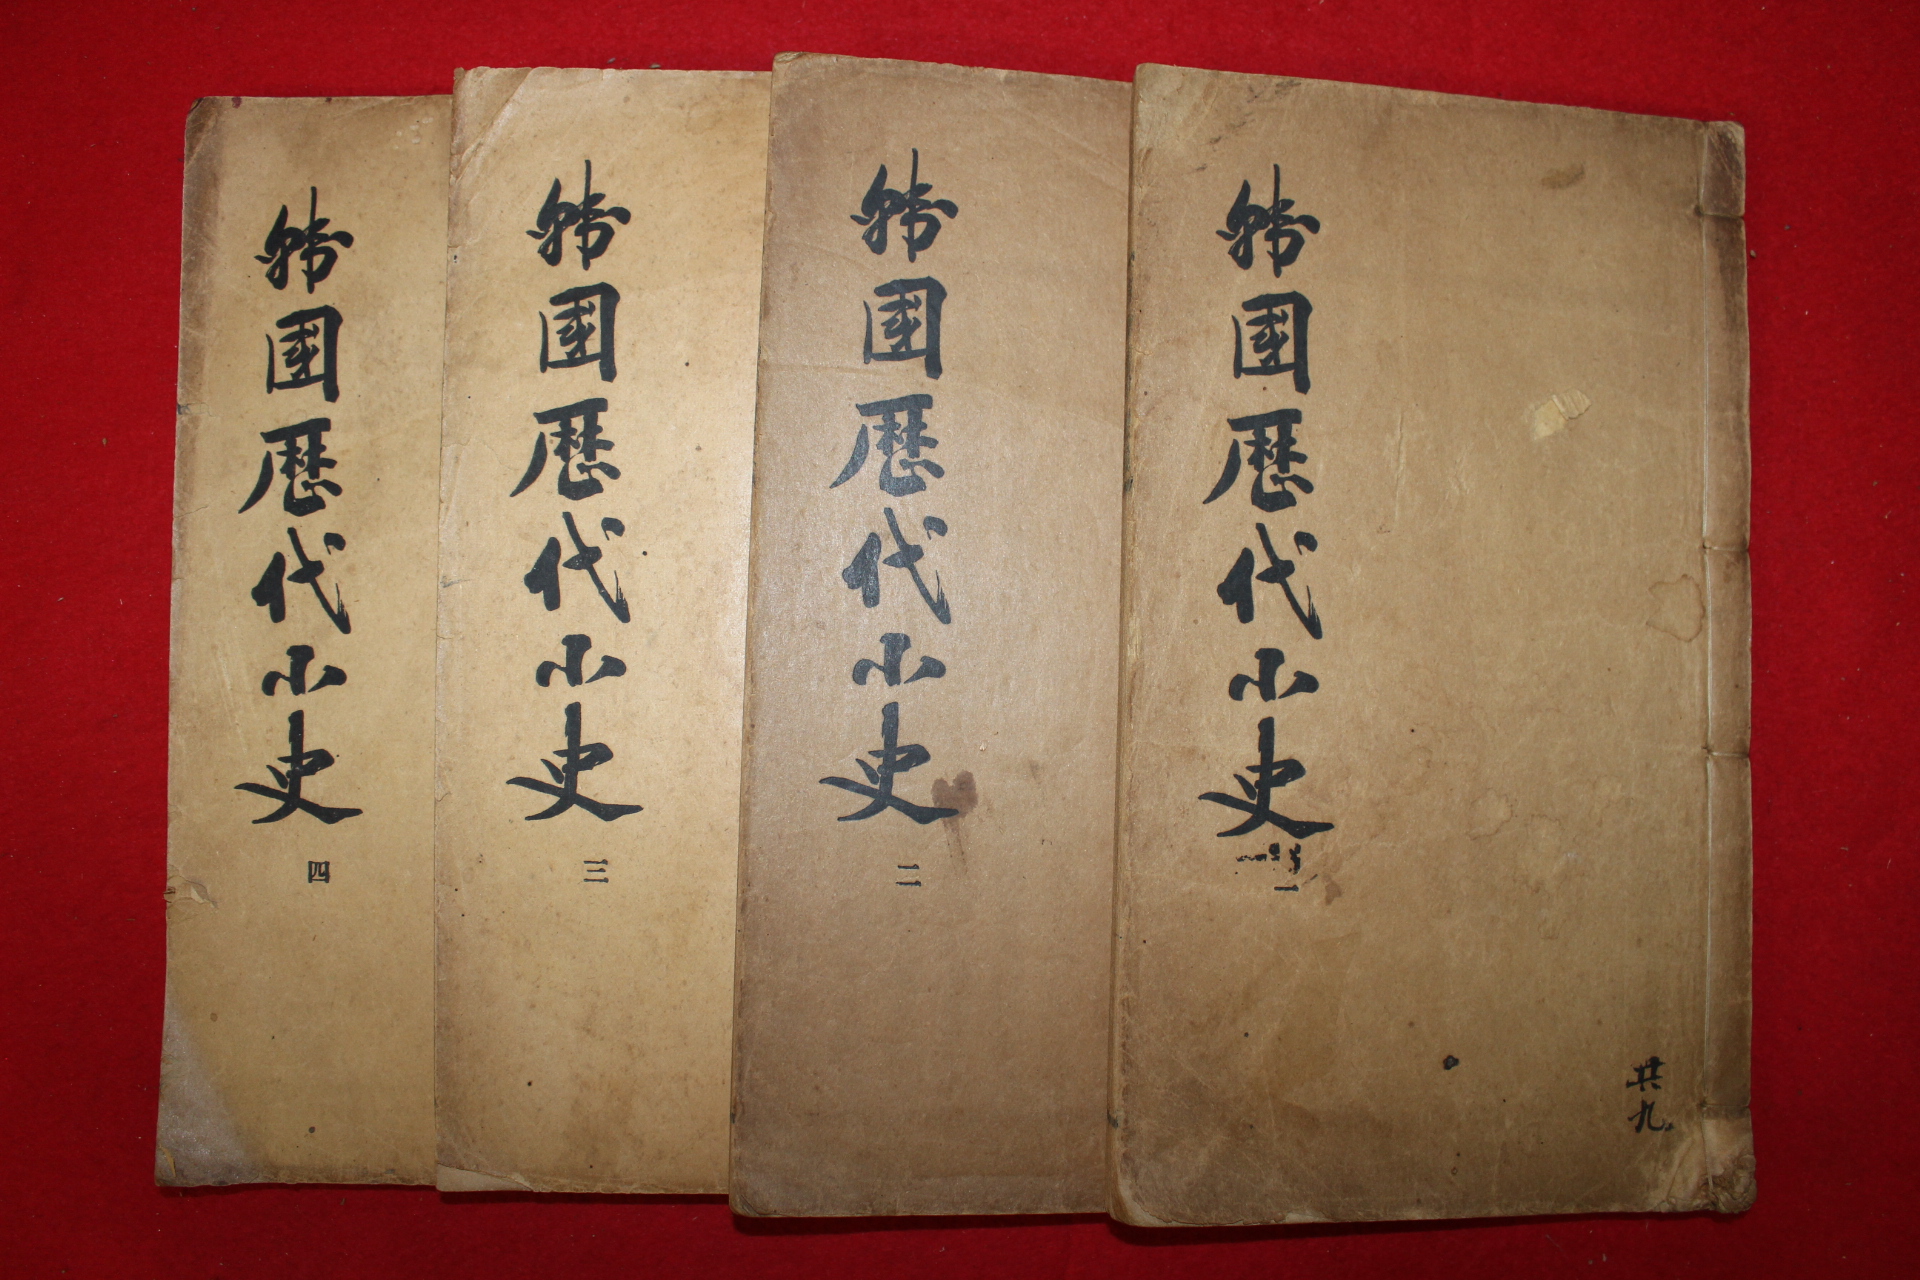 韓國歷代小史
一
共九
韓國歷代小史
二
韓國歷代小史
三
韓國歷代小史
四